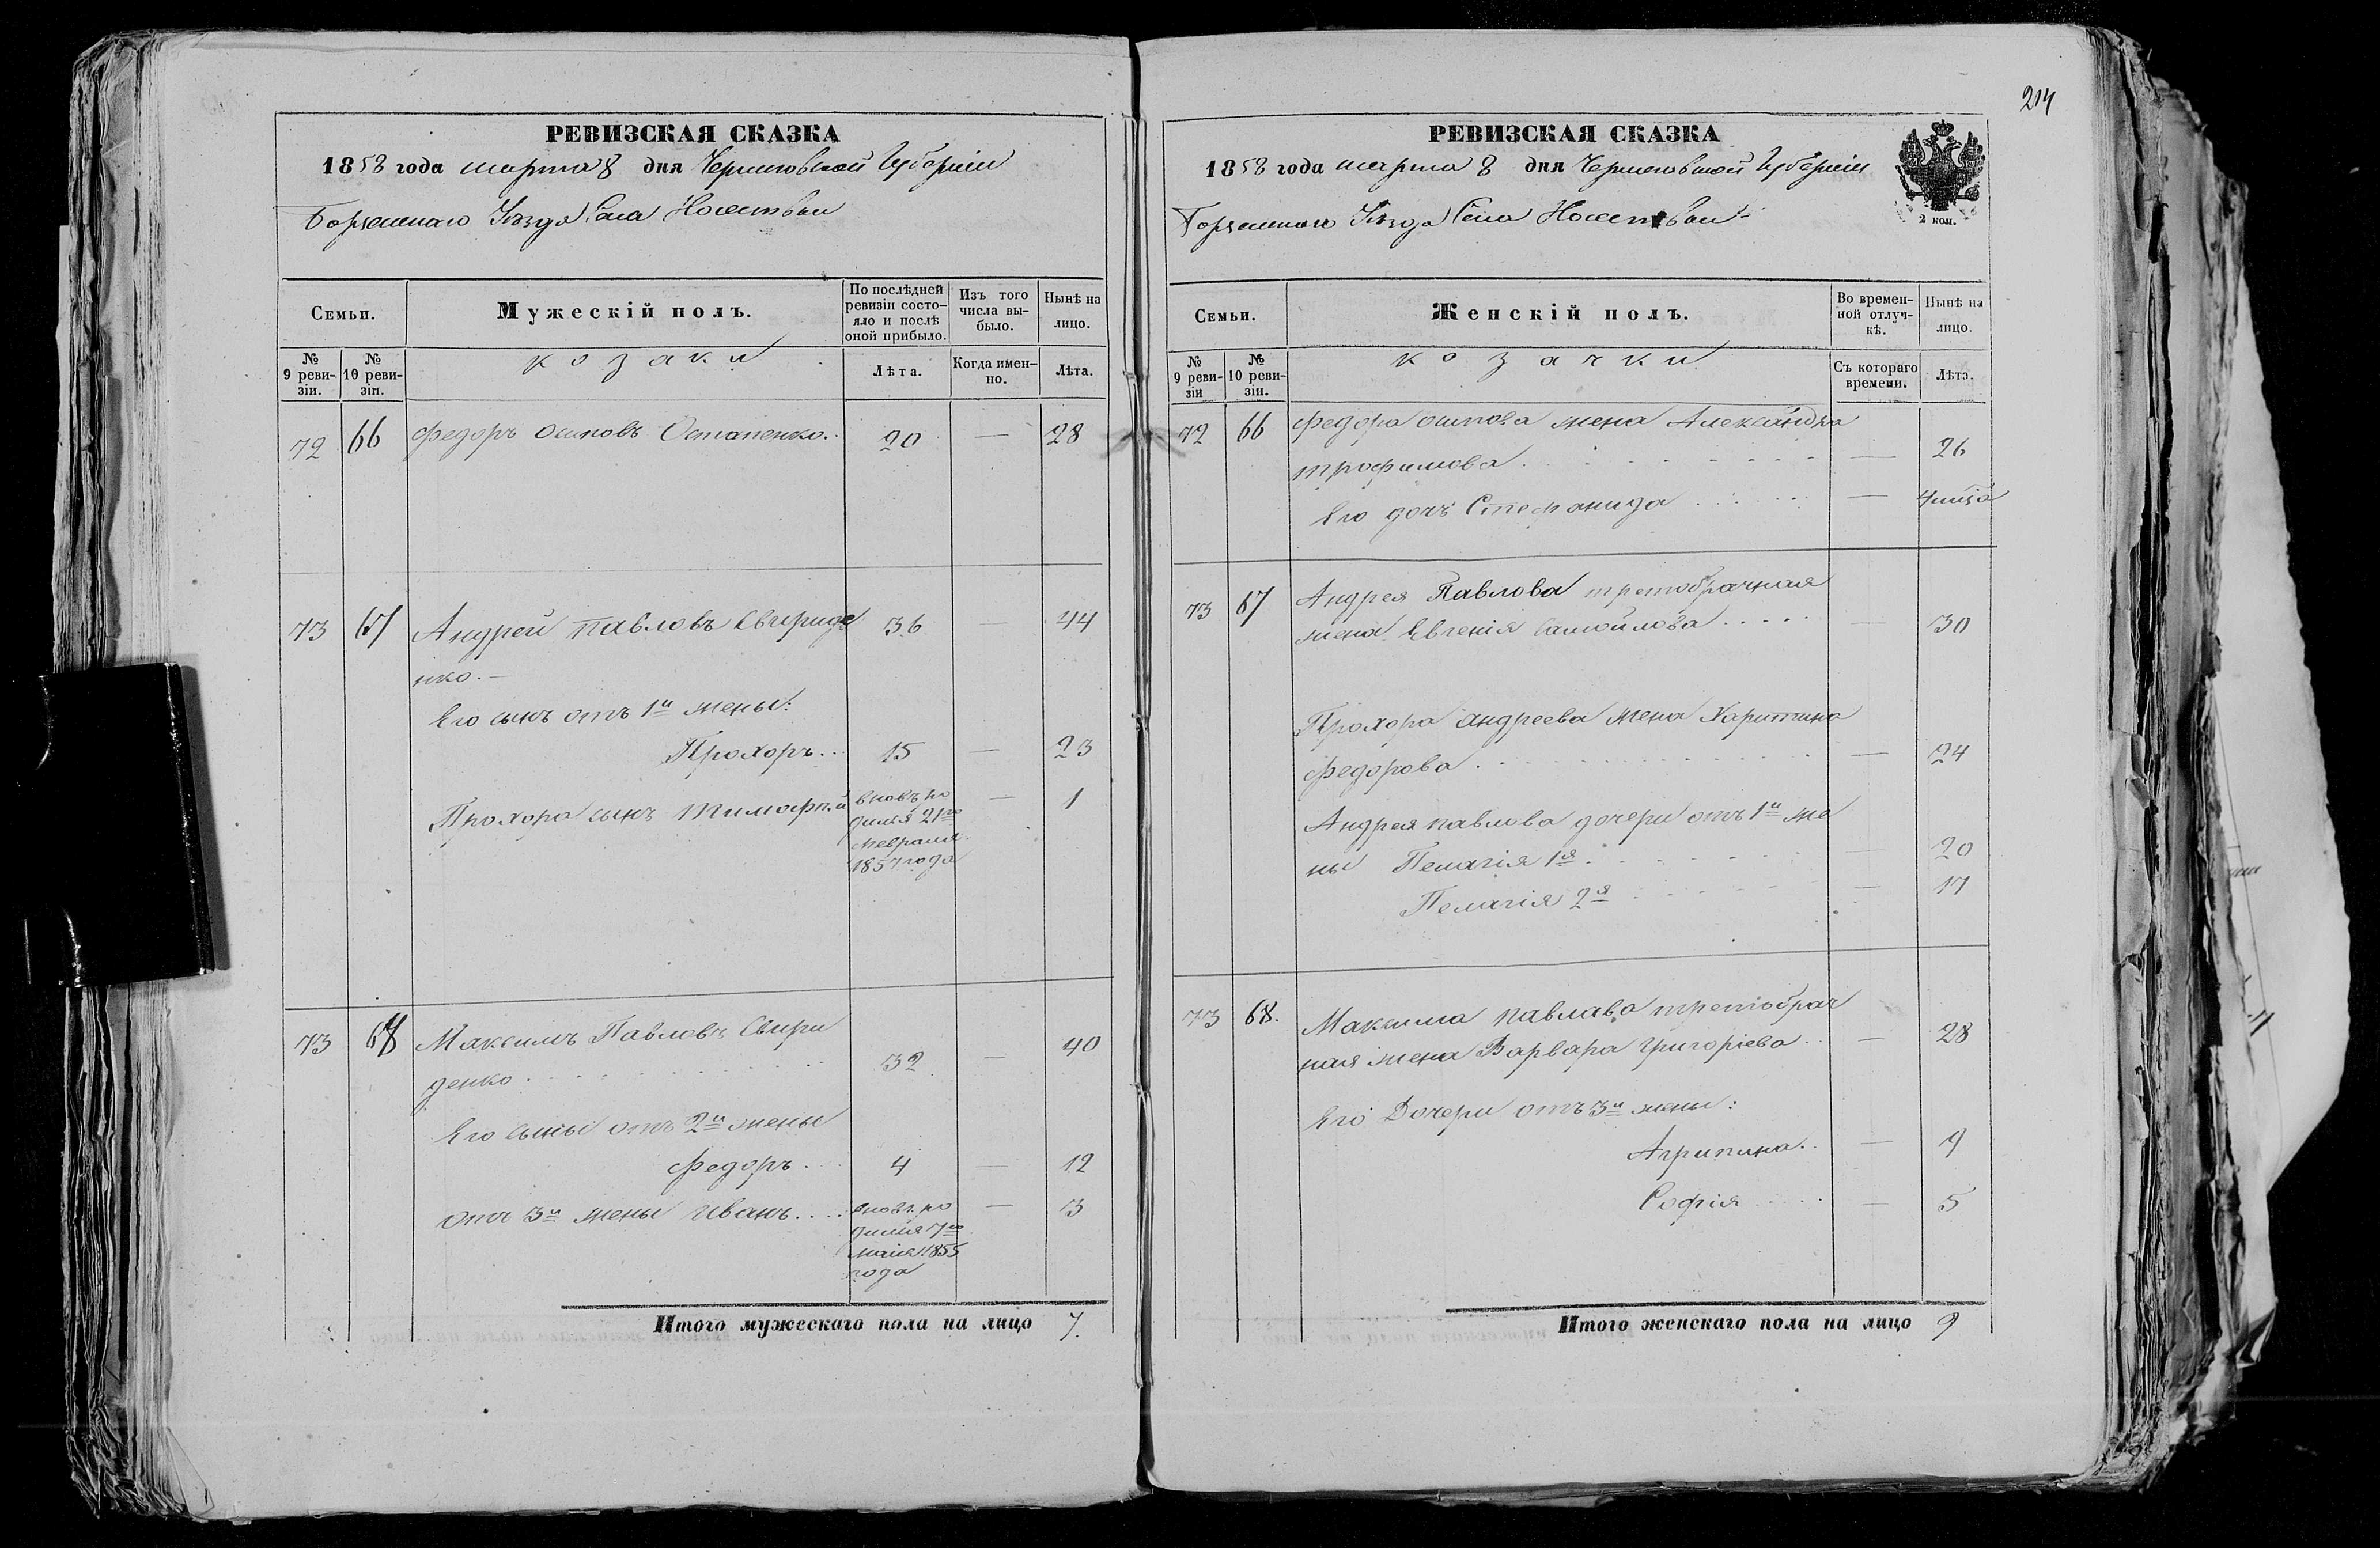 РЕВИЗСКАЯ СКАЗКА
1858 года марта 8 дня Черниговской Губерніи
Борзенскаго Уѣзда Села Носелѣвки
Семьи.
Мужескій полъ.
По послѣдней ревизіи состояло и послѣ оной прибыло.
Изъ того числа выбыло.
Нынѣ на лицо.
№ 9 ревизіи.
№ 10 ревизіи.
козаки
Лѣта.
Когда именно.
Лѣта.
72 66 Федоръ Осиповъ Остапенко. 20 — 28
73 67 Андрей Павловъ Свириде 36 44
нко. —
Его сынъ отъ 1й жены:
Прохоръ... 15 — 23
Прохора сынъ Тимофѣй вновь ро — 1
дился 21го
февраля
1857 года
73 68 Максимъ Павловъ Свири
денко 32 — 40
Его сыны отъ 2й жены
Федоръ... 4 — 12
отъ 3й жены Иванъ.... вновь ро — 3
дился 7го
маія 1855
года
Итого мужескаго пола на лицо 7.
214
РЕВИЗСКАЯ СКАЗКА
1858 года марта 8 дня Черниговской Губерніи
Борзенскаго Уѣзда Села
2 коп.
Семьи.
Женскій полъ.
Во временной отлучкѣ.
Нынѣ на лицо.
№ 9 ревизіи
№ 10 ревизіи.
козачки
Съ котораго времени.
Лѣта.
72 66 Федора Осипова жена Александра
Трофимова. — 26
Его дочь Стефанида — 4 мѣсяца
73 67 Андрея Павлова третобрачная
жена Евгенія Самойлова..... — 30
Прохора Андреева жена Харитина
Федорова. — 24
Андрея Павлова дочери отъ 1й же
ны Пелагія 1я. — 20
Пелагія 2я — 17
73 68. Максима Павлава третобрач
ная жена Варвара Григоріева.. — 28
Его Дочери отъ 3й жены:
Агрипина.. — 9
Софія — 5
Итого женскаго пола на лицо 9